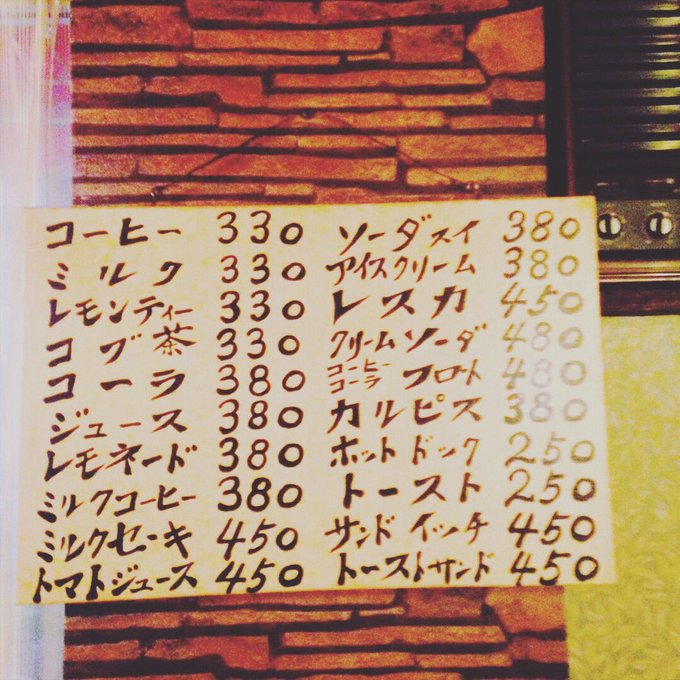 コーヒー 330
ミルク 330
レモンティー 330
コブ茶 330
コーラ 380
ジュース 380
レモネード 380
ミルクコーヒー 380
ミルクセーキ 450
トマトジュース 450
ソーダスイ 380
アイスクリーム 380
レスカ 450
クリームソーダ 480
コーヒー
コーラ フロート 480
カルピス 380
ホットドック 250
トースト 250
サンドイッチ 450
トーストサンド 450